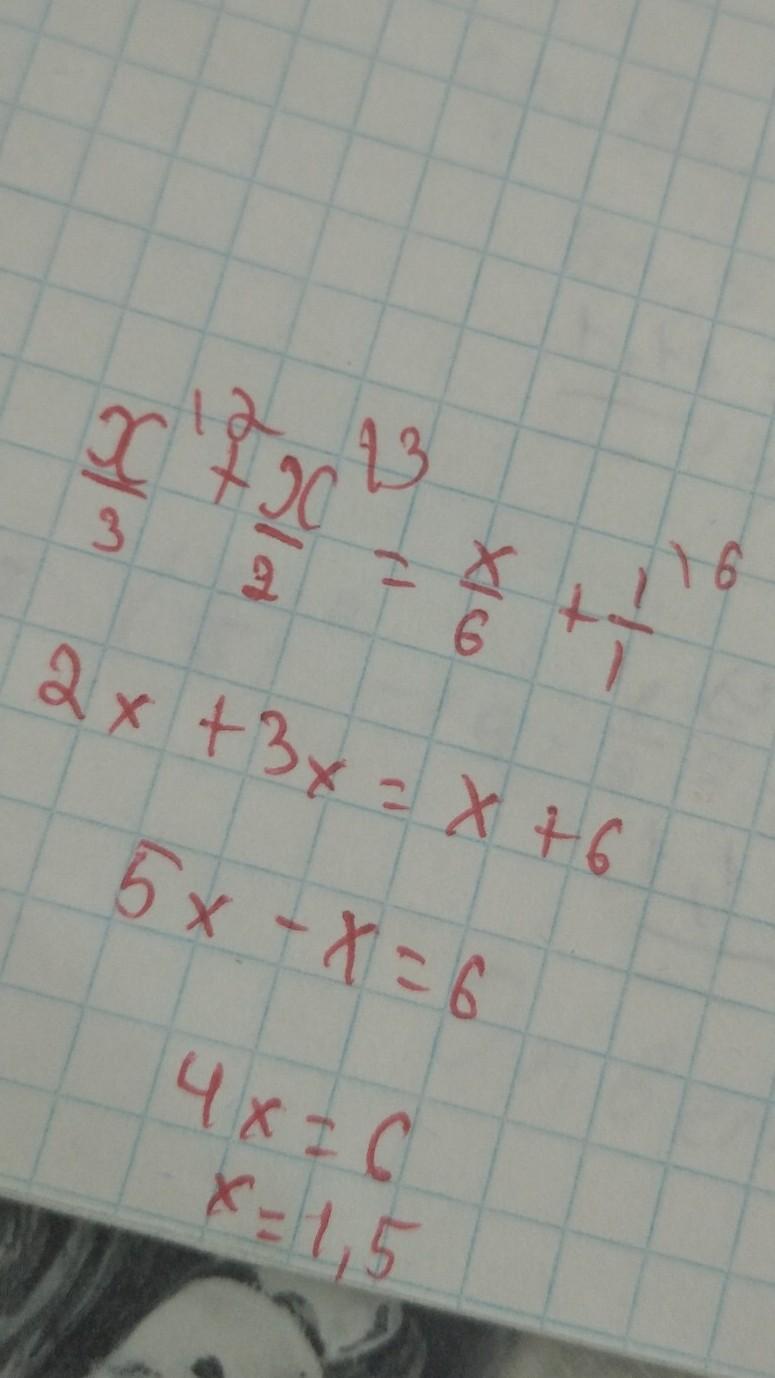 x/3 \2 + x/2 \3 = x/6 + 1/1 \6
2x + 3x = x + 6
5x - x = 6
4x = 6
x = 1,5